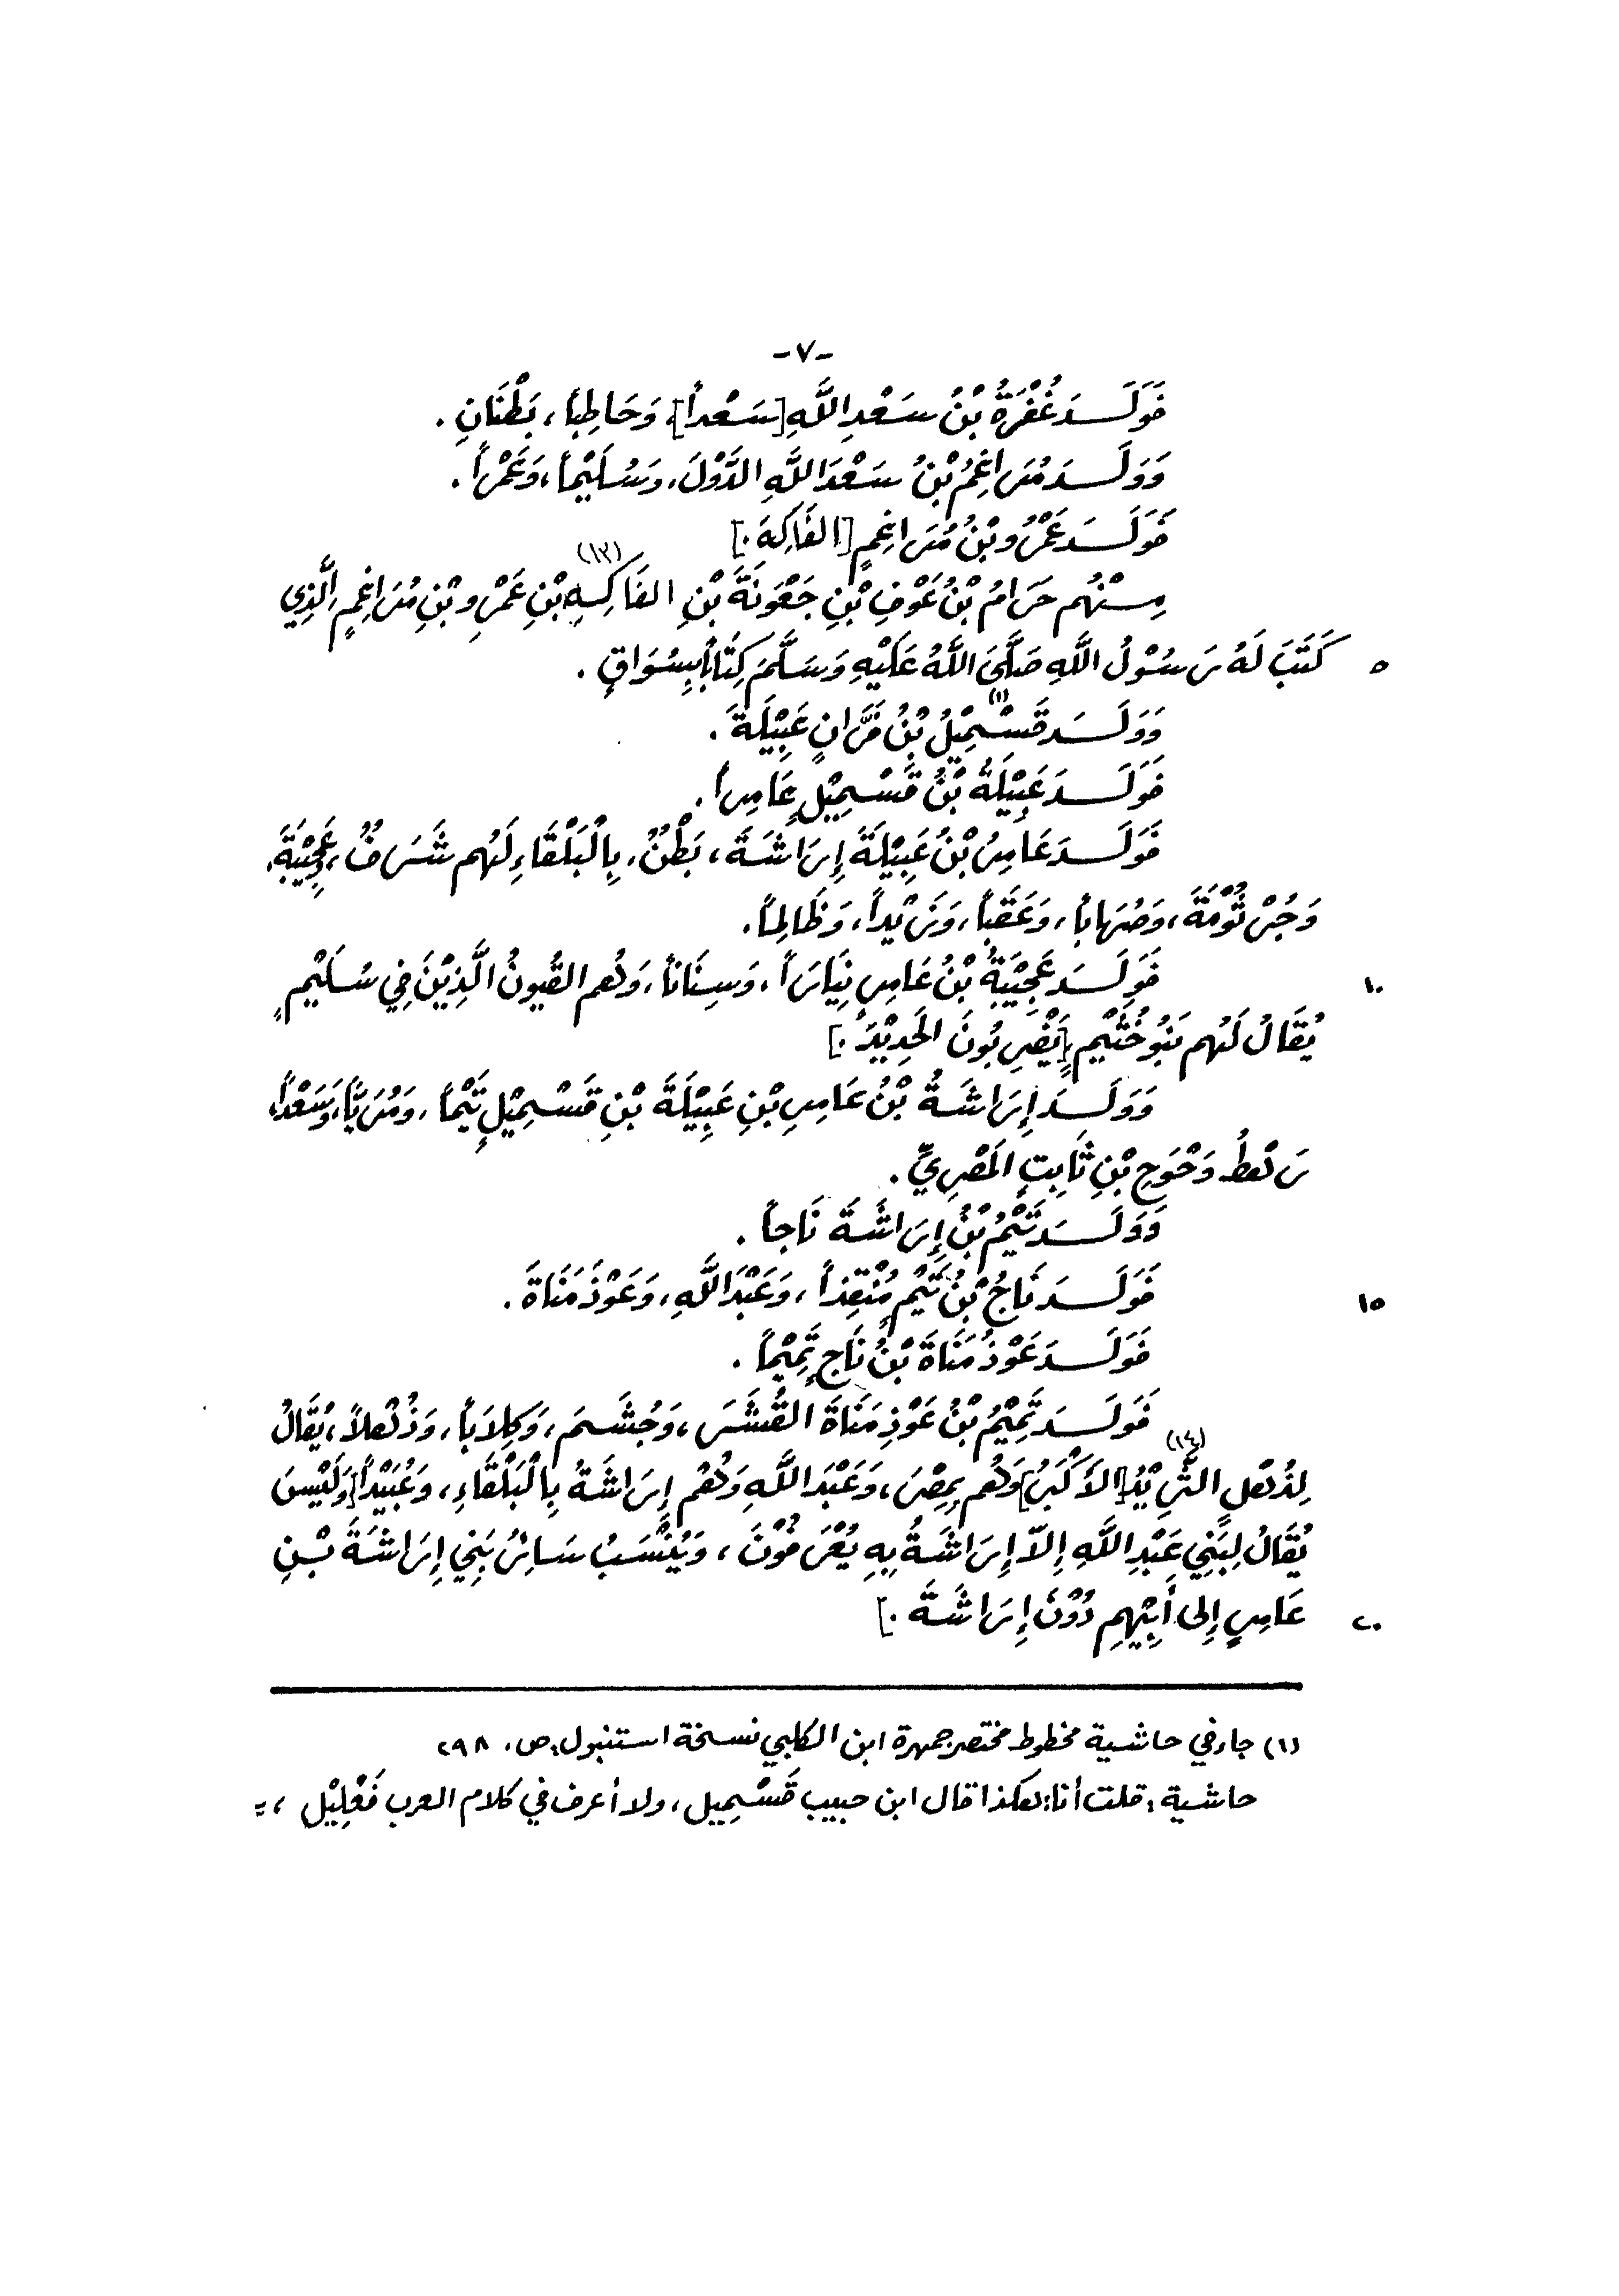 -٧-
فَوَلَدَ غُفْرَةُ بْنُ سَعْدِ اللَّهِ [سَعْداً]، وَحَاطِباً، بَطْنَانِ .
وَوَلَدَ مُرَاغِمُ بْنُ سَعْدَ اللَّهِ الدَّوْلَ، وَسُلَيْماً، وَعَمْراً .
فَوَلَدَ عَمْرُو بْنُ مُرَاغِمٍ [الفَاكِهَ .]
مِنْهُم حَرَامُ بْنُ عَوْفِ بْنِ جَعْوَنَةَ بْنِ الفَاكِهِ (١٣) بْنِ عَمْرِو بْنِ مُرَاغِمٍ الَّذِي
٥ كَتَبَ لَهُ رَسُوْلُ اللَّهِ صَلَّى اللَّهُ عَلَيْهِ وَسَلَّمَ كِتَاباً بِسُوَاقٍ .
وَوَلَدَ قَسْمِيْلُ (١) بْنُ فَرَّانٍ عَبِيْلَةَ .
فَوَلَدَ عَبِيْلَةُ بْنُ قَسْمِيْلٍ عَامِراً .
فَوَلَدَ عَامِرُ بْنُ عَبِيْلَةَ إِرَاشَةَ، بَطْنٌ، بِالْبَلْقَاءِ لَهُم شَرَفٌ، وَعَجِيْبَةَ،
وَجُرْثُوْمَةَ، وَصُهَاباً، وَعَقَباً، وَزَيْداً، وَظَالِماً.
١٠ فَوَلَدَ عَجِيْبَةُ بْنُ عَامِرٍ نِيَاراً، وَسِنَاناً، وَهُم القُيونُ الَّذِيْنَ فِي سُلَيْمٍ
يُقَالُ لَهُم بَنُو خُثَيْمٍ، [يَضْرِبُونَ الحَدِيْدَ .]
وَوَلَدَ إِرَاشَةُ بْنُ عَامِرِ بْنِ عَبِيْلَةَ بْنِ قَسْمِيْلٍ تَيْماً، وَمُرِّيّاً، وَسَعْداً،
رَهْطُ وَحْوَحِ بْنِ ثَابِتٍ المَصْرِيِّ .
وَوَلَدَ تَيْمُ بْنُ إِرَاشَةَ نَاجاً .
١٥ فَوَلَدَ نَاجُ بْنُ تَيْمٍ مُنْقِذاً، وَعَبْدَ اللَّهِ، وَعَوْذَ مَنَاةَ .
فَوَلَدَ عَوْذُ مَنَاةَ بْنُ نَاجٍ تَمِيْماً .
فَوَلَدَ تَمِيْمُ بْنُ عَوْذِ مَنَاةَ القُشَرَ، وَجُشَمَ، وَكِلَاباً، وَذُهْلاً، يُقَالُ
لِذُهْلٍ الشَّرِيْدُ (١٤) [الأَكْبَرُ] وَهُم بِمِصْرَ، وَعَبْدَ اللَّهِ وَهُمْ إِرَاشَةُ بِالْبَلْقَاءِ، وَعُبَيْداً [وَلَيْسَ
يُقَالُ لِبَنِي عَبْدِ اللَّهِ إِلَّا إِرَاشَةُ بِهِ يُعْرَفُوْنَ، وَيُنْسَبُ سَائِرُ بَنِي إِرَاشَةَ بْنِ
٢٠ عَامِرٍ إِلى أَبِيْهِمِ دُوْنَ إِرَاشَةَ .]
(١) جاء في حاشية مخطوط مختصر جمهرة ابن الكلبي نسخة استنبول، ص، ٢٩٨
حاشية : قلت أنا: هكذا قال ابن حبيب قَسْمِيل، ولا أعرف في كلام العرب فَعْلِيْل ، =